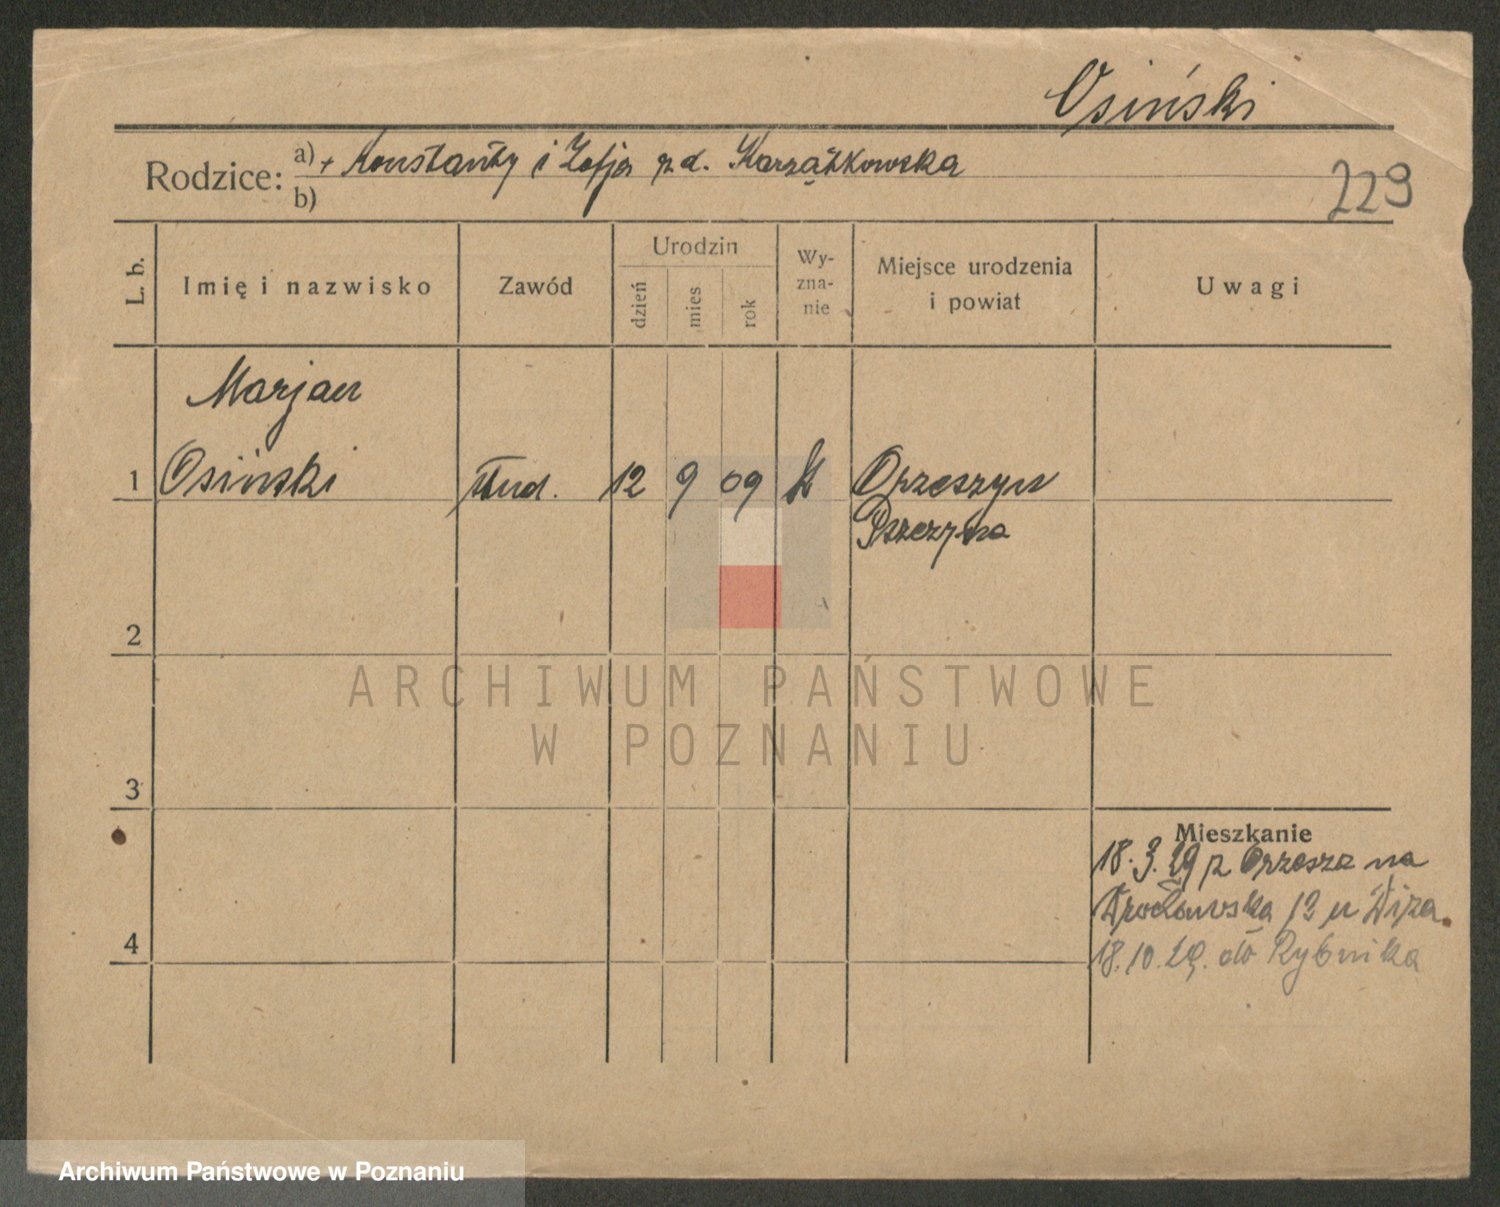 Osiński
Rodzice: a) + Konstanty i Zofja z d. Karzątkowska
b)
229
L. b.
Imię i nazwisko
Zawód
Urodzin
dzień
mies
rok
Wy-
zna-
nie
Miejsce urodzenia
i powiat
Uwagi
Marjan
1 Osiński stud. 12 9 09 k Orzeszyn
Pszczyna
2
3
4
Mieszkanie
18.3.29 z Orzesze na
Wrocławska 12 u
18.10.29. do Rybnika
ARCHIWUM PAŃSTWOWE
W POZNANIU
Archiwum Państwowe w Poznaniu